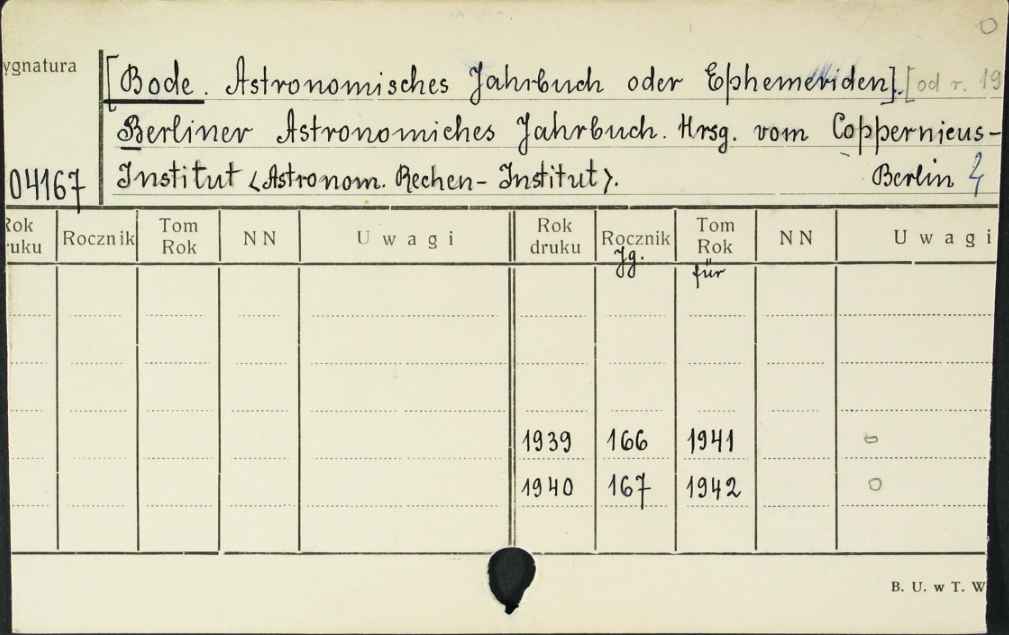 ygnatura
[Bode. Astronomisches Jahrbuch oder Ephemeriden]. [od r. 19
Berliner Astronomiches Jahrbuch. Hrsg. vom Coppernicus-
04167 Institut <Astronom. Rechen-Institut>. Berlin
Rok druku Rocznik Tom Rok NN Uwagi Rok druku Rocznik Tom Rok NN Uwagi
Jg. für
1939 166 1941
1940 167 1942
B. U. w T. W